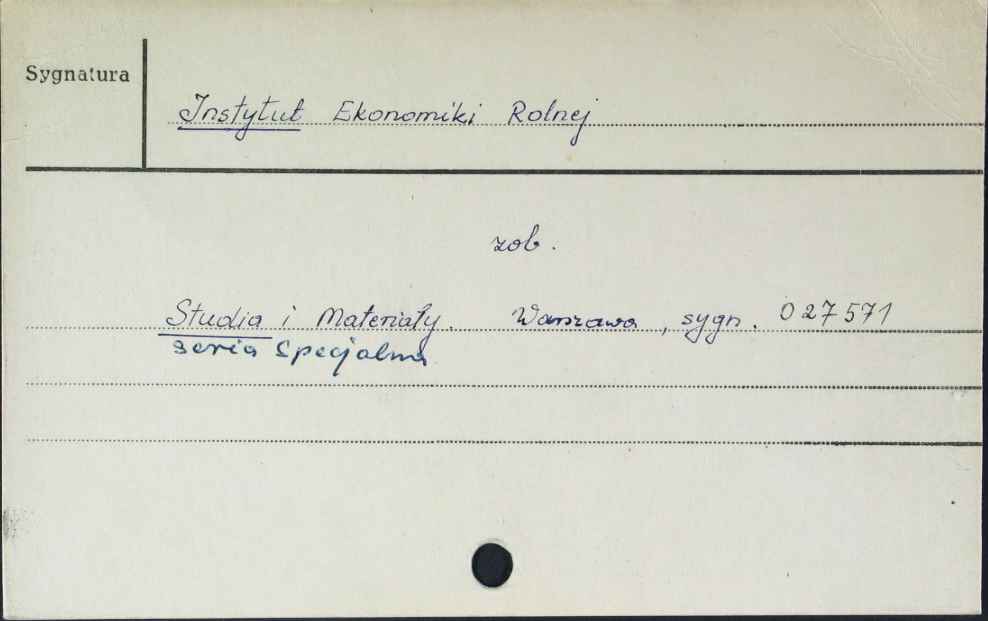 Sygnatura
Instytut Ekonomiki Rolnej
zob.
Studia i Materiały. Warszawa, sygn. 027571
Seria Specjalna